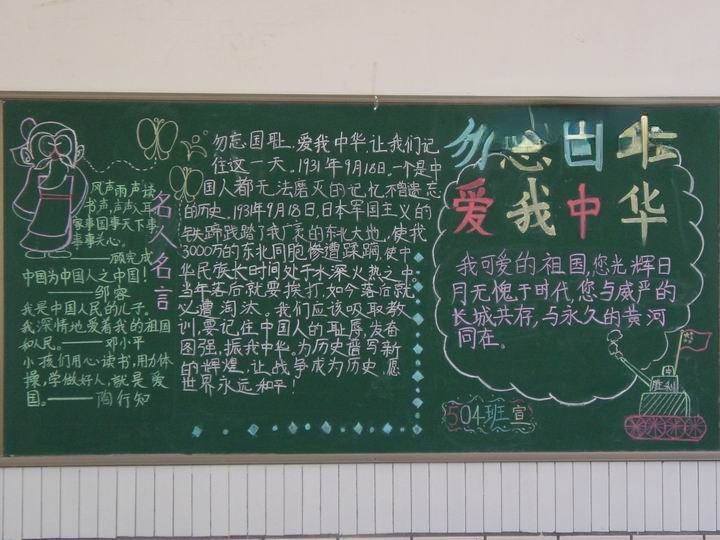 名人名言
风声雨声读
书声声声入耳
家事国事天下事
事事关心。
——顾宪成
中国为中国人之中国！
——邹容
我是中国人民的儿子。
我深情地爱着我的祖国
和人民。——邓小平
小孩们用心读书，用力体
操，学做好人，就是爱
国。——陶行知
勿忘国耻、爱我中华，让我们记
住这一天。1931年9月18日，一个是中
国人都无法磨灭的记忆，不曾遗忘
的历史。1931年9月18日，日本军国主义的
铁蹄践踏了我广袤的东北大地，使我
3000万的东北同胞惨遭蹂躏，使中
华民族长时间处于水深火热之中。
当年落后就要挨打，如今落后就
义遭淘汰。我们应该吸取教
训，要记住中国人的耻辱，发奋
图强，振我中华。为历史谱写新
的辉煌，让战争成为历史，愿
世界永远和平！
勿忘国耻
爱我中华
我可爱的祖国，您光辉日
月无愧于时代，您与威严的
长城共存，与永久的黄河
同在。
504班宣
胜利